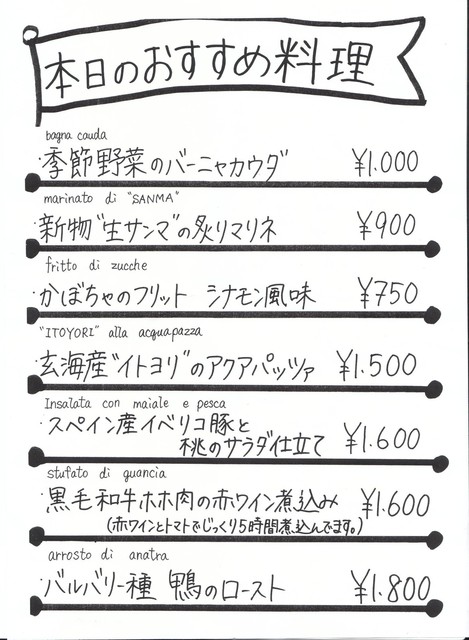 本日のおすすめ料理
bagna cauda
・季節野菜のバーニャカウダ ¥1.000
marinato di "SANMA"
・新物"生サンマ"の炙りマリネ ¥900
fritto di zucche
・かぼちゃのフリット シナモン風味 ¥750
"ITOYORI" alla acquapazza
・玄海産"イトヨリ"のアクアパッツァ ¥1.500
Insalata con maiale e pesca
・スペイン産イベリコ豚と
桃のサラダ仕立て ¥1.600
stufato di guancia
・黒毛和牛ホホ肉の赤ワイン煮込み ¥1.600
(赤ワインとトマトでじっくり5時間煮込んでます。)
arrosto di anatra
・バルバリー種 鴨のロースト ¥1.800